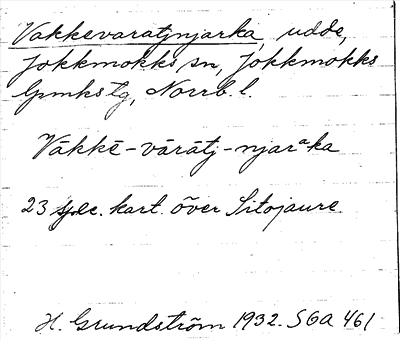 Vakkevaratjnjarka, udde,
Jokkmokks sn, Jokkmokks
lpmks tg, Norrb. l.
Vākkē-vārātj-njarᵃka
23 spec. kart. över Sitojaure.
H. Grundström 1932. SOA 461